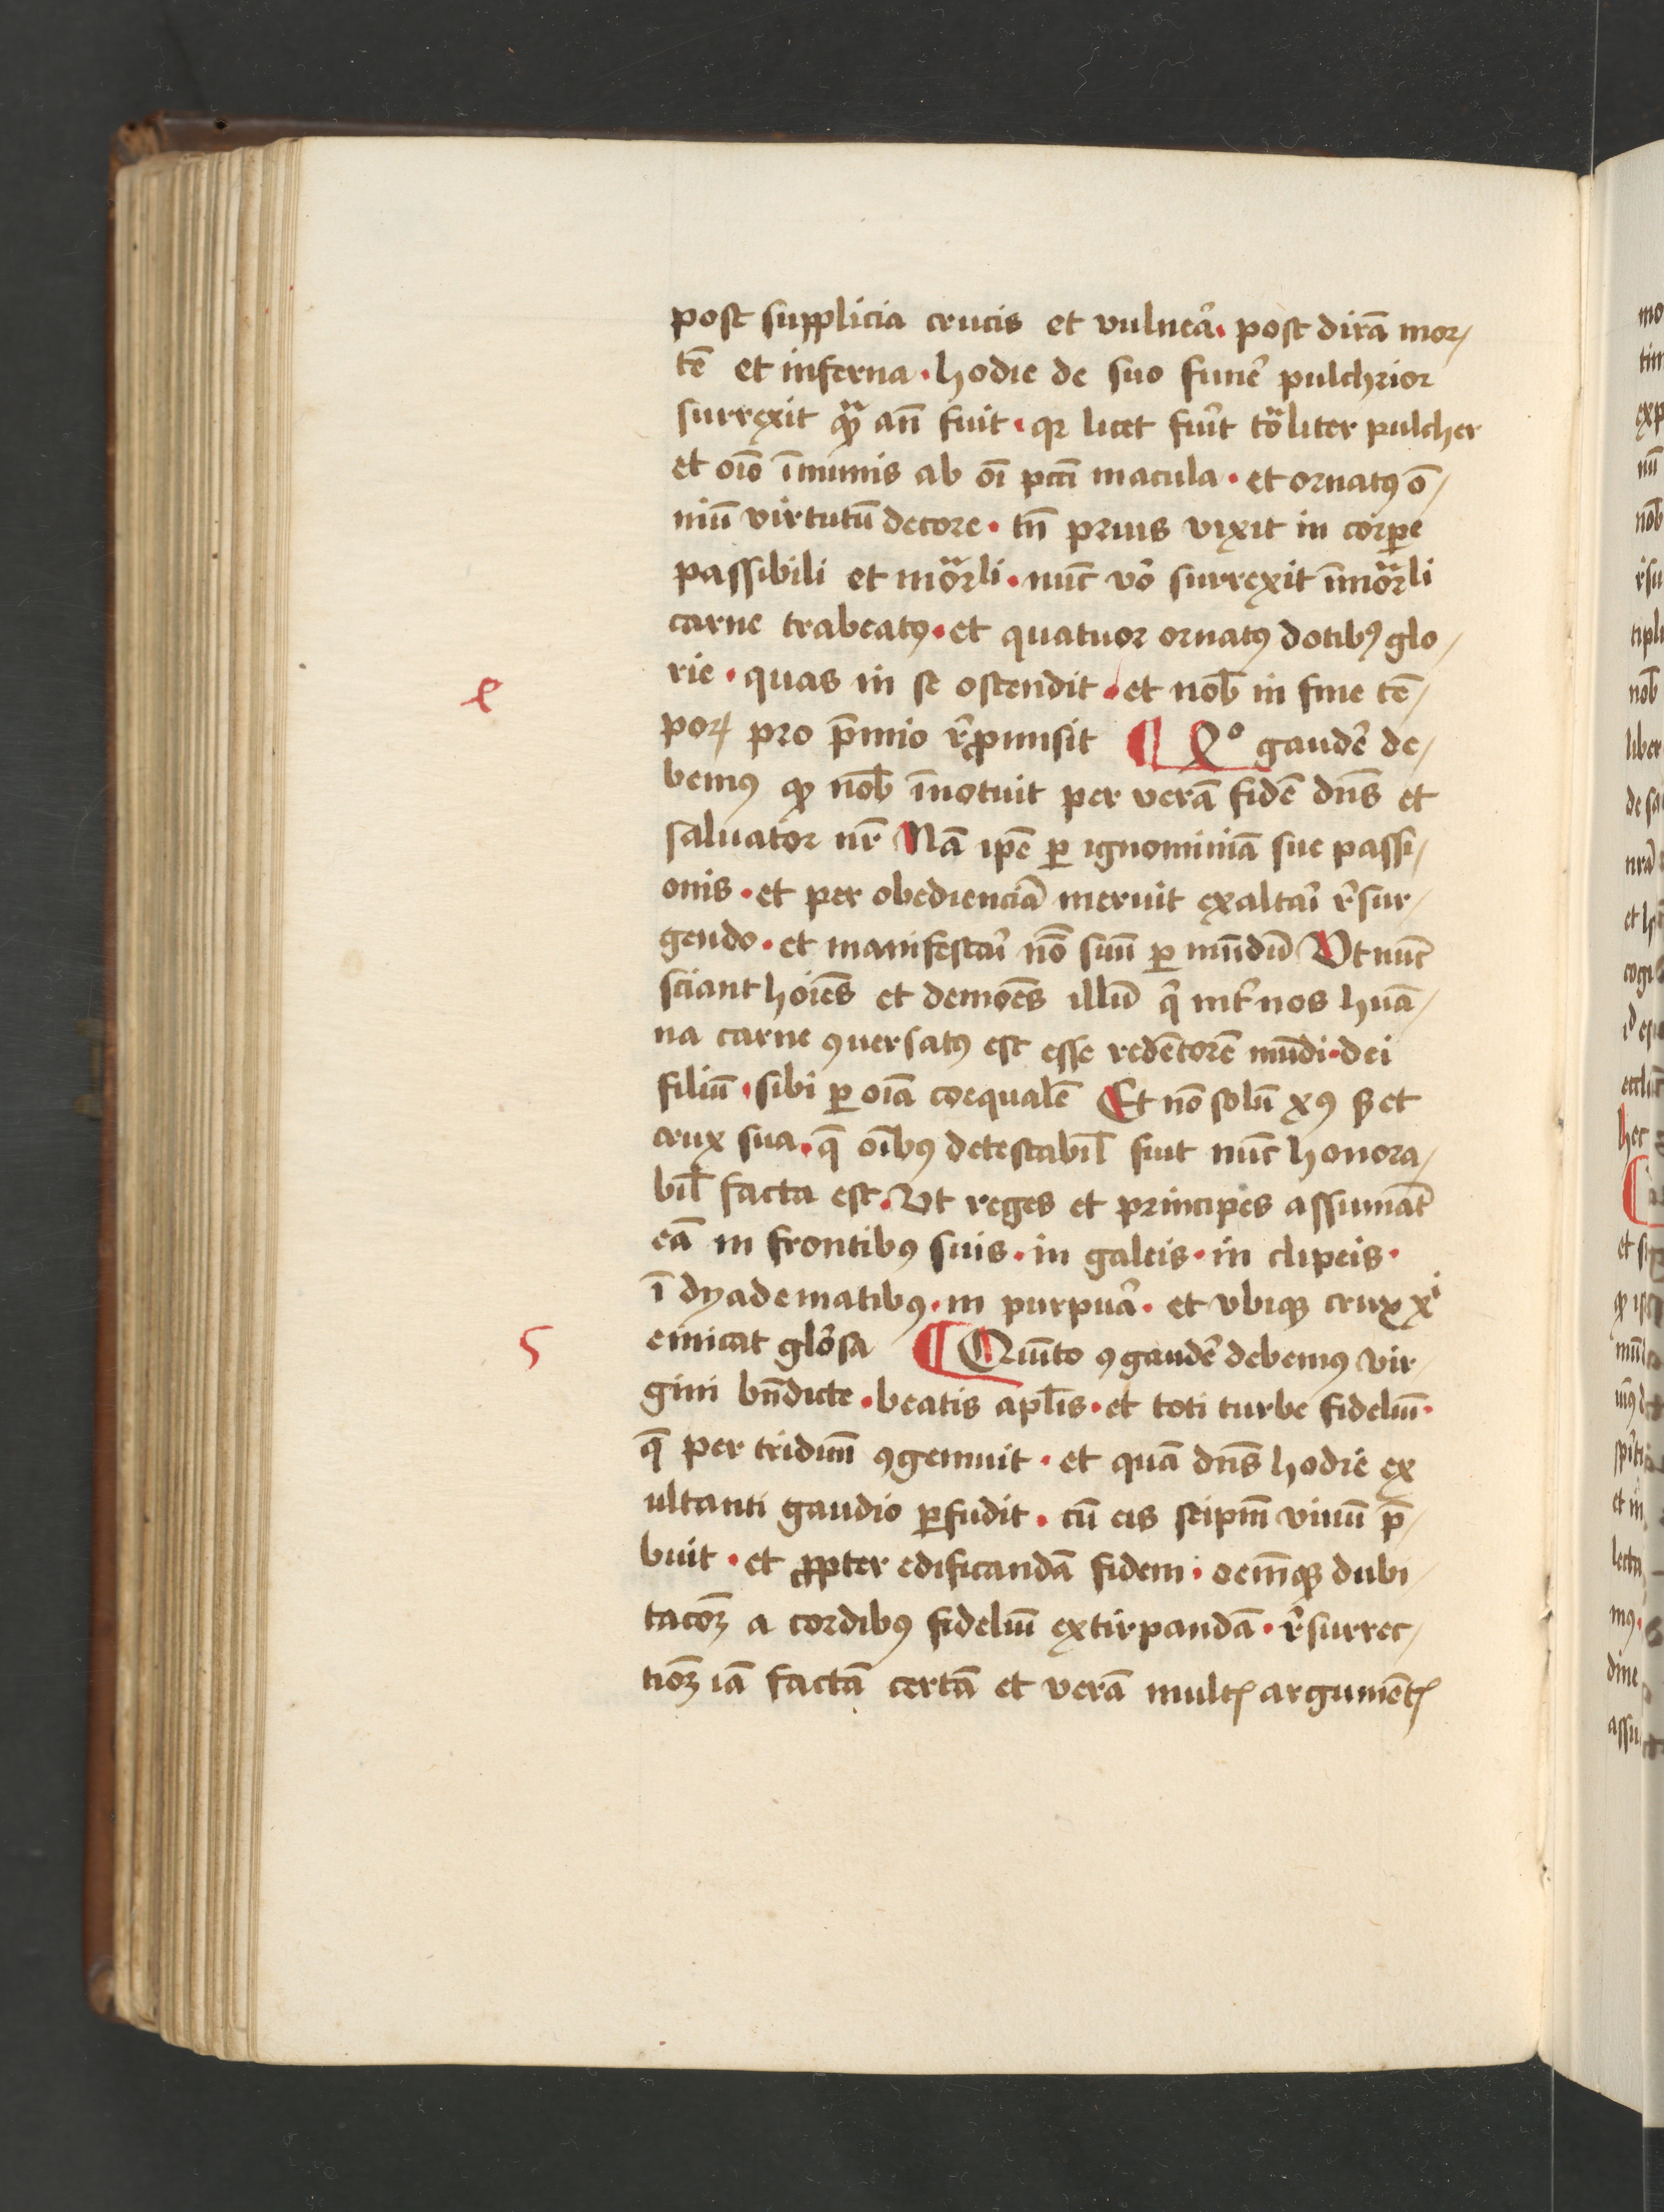 post supplicia crucis et vulnea᷑ · post dirā mor/
tē et inferna · hodie de suo funē pulchrior
surrexit qͣꝫ an̄ fuit · qꝛ licet fuīt to͞liter pulcher
et oīo īmunis ab oī pc̄ti macula · et ornatꝯ o͞/
niū virtutū decore · tn̄ prius vixit in corpꝑe
passibili et mo͞rli · nūc vo͞ surrexit īmo͞rli
carne trabeatꝯ · et quatuor ornatꝯ dotibꝯ glo/
rie · quas in se ostendit · et nob̄ in fine tē/
4
poꝝ pro p̄mio r̄ꝓmisit ¶ 4º gaudē de/
bemꝯ ꝙ nob̄ īnotuit per verā fidē dn̄s et
saluator nr̄ Nā ip̄e ꝑ ignominiā sue passi/
onis · et per obedienciā meruit exaltāi r̄sur/
gendo · et manifestāi no͞ suū ꝑ mūdū Vt nūc
sciant hoīes et demoēs illū q̄ int̄ nos huā/
na carne ꝯuersatꝯ est esse redētorē mūdi · dei
filiū · sibi ꝑ oīa coequalē Et no͞ solū xꝯ sꝫ et
crux sua · q̄ oībꝯ detestabil̄ fuit nūc honora/
bil̄ facta est · Vt reges et principes assumāt
eā in frontibꝯ suis · in galeis · in clipeis ·
ī dyadematibꝯ · in purpuā · et vbiqꝫ crux xⁱ
5
emicat glo͞sa ¶ Quīto ꝯgaudē debemꝯ vir/
gini bn̄dicte · beatis apl̄is · et toti turbe fideliū ·
q̄ per triduū ꝯgemuit · et quā dn̄s hodie ex
ultanti gaudio ꝑfudit · cū eis seip̄m viuū p̄/
buit · et ꝓpter edificandā fidem · oem̄qꝫ dubi/
tacoꝫ a cordibꝯ fideliū extirpandā · r̄surrec/
tioꝫ iā factā certā et verā multꝭ argumētꝭ